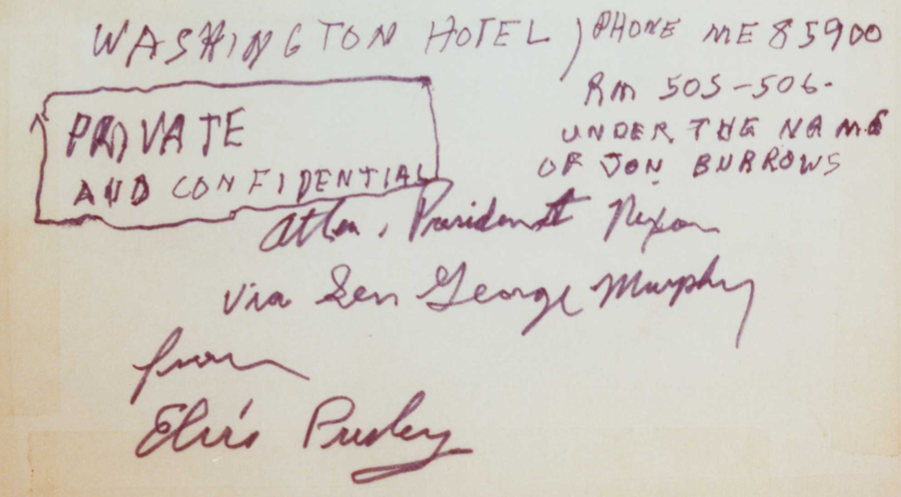 WASHINGTON HOTEL) PHONE ME 85900
RM 505-506-
UNDER THE NAME
OF JON BURROWS
PRIVATE
AND CONFIDENTIAL
Attn. President Nixon
via Sen George Murphy
from
Elvis Presley